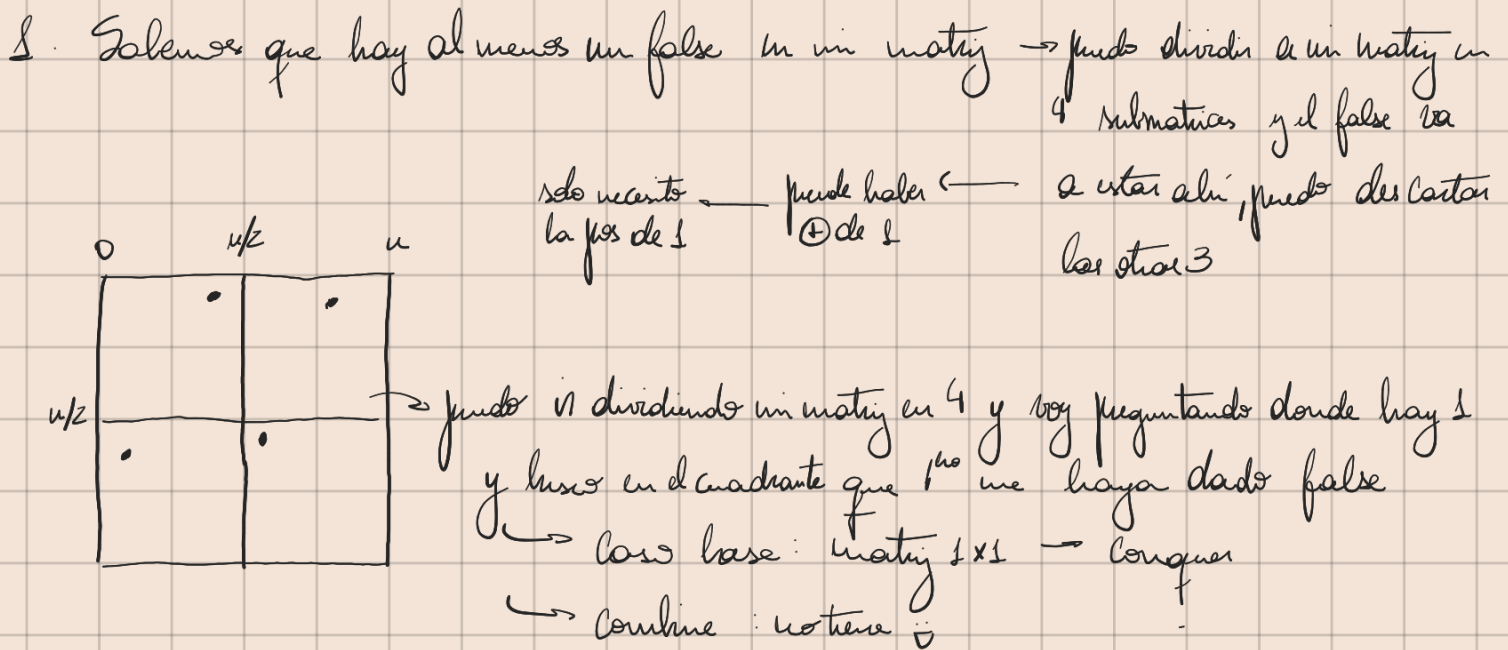 1. Sabemos que hay al menos un false en un matriz → puedo dividir a un matriz en
4 submatrices y el false va
a estar ahí, puedo descartar
las otras 3
← puede haber
⊕ de 1
← solo necesito
la pos de 1
0 n/2 n
n/2
→ puedo ir dividiendo un matriz en 4 y voy preguntando donde hay 1
y busco en el cuadrante que 1ro me haya dado false
↳ Caso base: matriz 1x1 → conquer
↳ combine: no tiene